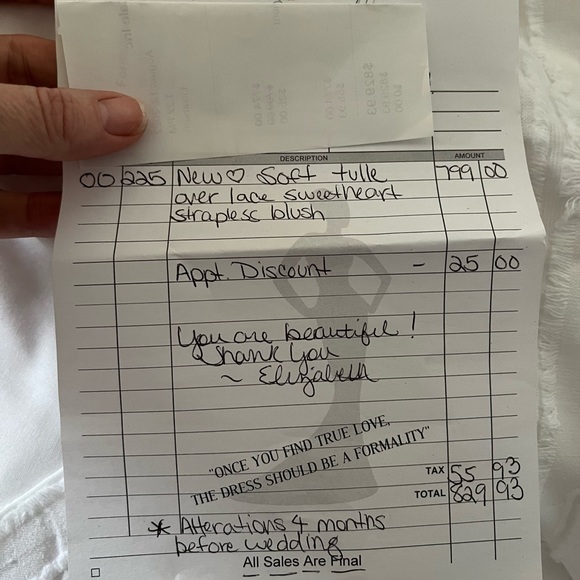 $829.93
DESCRIPTION AMOUNT
00 225 New ♡ Soft tulle 799 00
over lace sweetheart
strapless blush
Appt. Discount - 25 00
You are beautiful!
Thank You
~ Elizabeth
"ONCE YOU FIND TRUE LOVE,
THE DRESS SHOULD BE A FORMALITY"
TAX 55 93
TOTAL 829 93
* Alterations 4 months
before wedding
All Sales Are Final